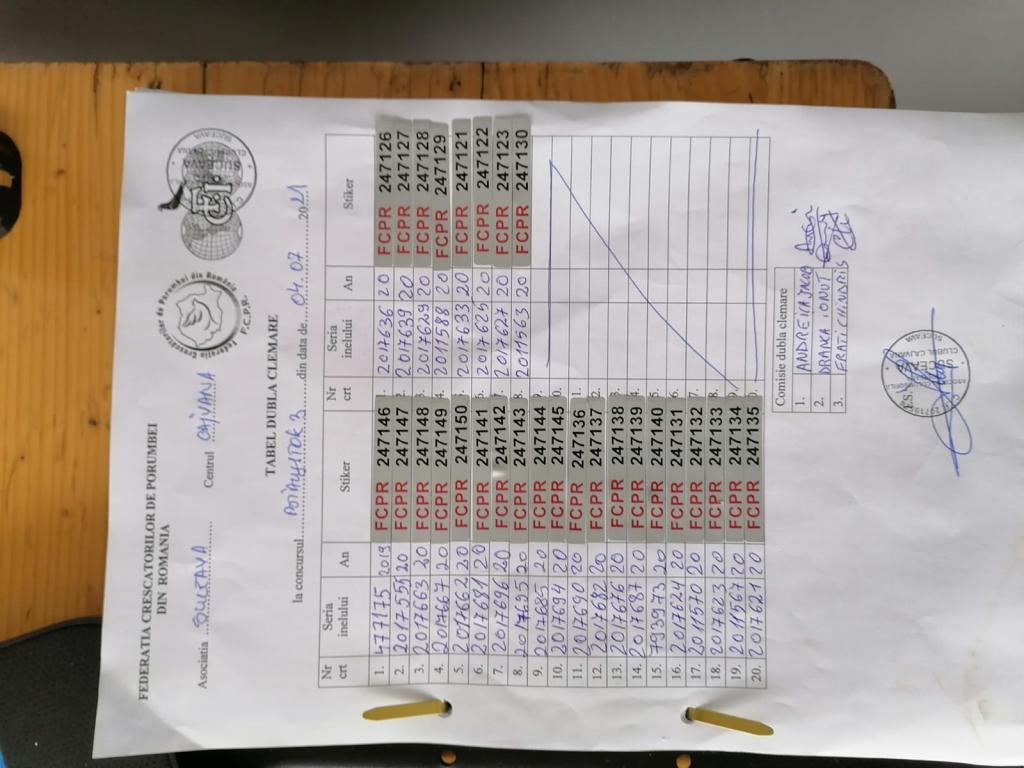 FEDERATIA CRESCATORILOR DE PORUMBEI
DIN ROMANIA
Federatia Crescatorilor de Porumbei din România
F.C.P.R.
SUCEAVA
Asociatia SUCEAVA Centrul CAJVANA
TABEL DUBLA CLEMARE
la concursul 3 din data de 04.07 2021
Nr crt Seria inelului An Stiker Nr crt Seria inelului An Stiker
1. 477175 2019 FCPR 247146 1. 2017636 20 FCPR 247126
2. 2017555 20 FCPR 247147 2. 2017639 20 FCPR 247127
3. 2017663 20 FCPR 247148 3. 2017629 20 FCPR 247128
4. 2017667 20 FCPR 247149 4. 2011588 20 FCPR 247129
5. 2017662 20 FCPR 247150 5. 2017633 20 FCPR 247121
6. 2017681 20 FCPR 247141 6. 2017625 20 FCPR 247122
7. 2017696 20 FCPR 247142 7. 2017627 20 FCPR 247123
8. 2017695 20 FCPR 247143 8. 2011563 20 FCPR 247130
9. 2017685 20 FCPR 247144 9.
10. 2017694 20 FCPR 247145 0.
11. 2017690 20 FCPR 247136 1.
12. 2017682 20 FCPR 247137 2.
13. 2017676 20 FCPR 247138 3.
14. 2017687 20 FCPR 247139
15. 793973 20 FCPR 247140 5.
16. 2017624 20 FCPR 247131 6.
17. 2011570 20 FCPR 247132 7.
18. 2017623 20 FCPR 247133 8.
19. 2011567 20 FCPR 247134 9.
20. 2017621 20 FCPR 247135 0.
Comisie dubla clemare
1.
2. IONUT
3.
CLUBUL CAJVANA
SUCEAVA